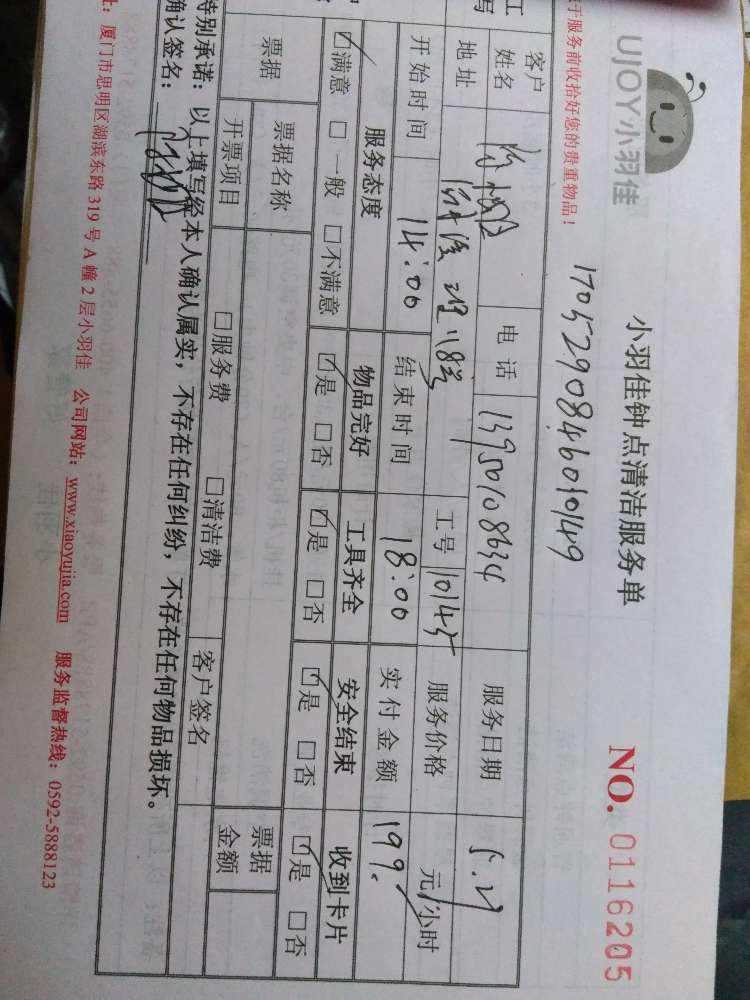 UJOY小羽佳
小羽佳钟点清洁服务单
NO. 0116205
于服务前收拾好您的贵重物品！
1705290846010149
工
写
客户
姓名
电话 13950108634 服务日期 5.29
地址 18号 工号 10145 服务价格 元/小时
开始时间 14:00 结束时间 18:00 实付金额 199.
服务态度 物品完好 工具齐全 安全结束 收到卡片
☑满意 □一般 □不满意 ☑是 □否 ☑是 □否 ☑是 □否 ☑是 □否
票据 票据名称 □服务费 □清洁费 票据
金额
开票项目 客户签名
特别承诺：以上填写经本人确认属实，不存在任何纠纷，不存在任何物品损坏。
确认签名：
址：厦门市思明区湖滨东路 319 号 A 幢 2 层小羽佳 公司网站：www.xiaoyujia.com 服务监督热线：0592-5888123